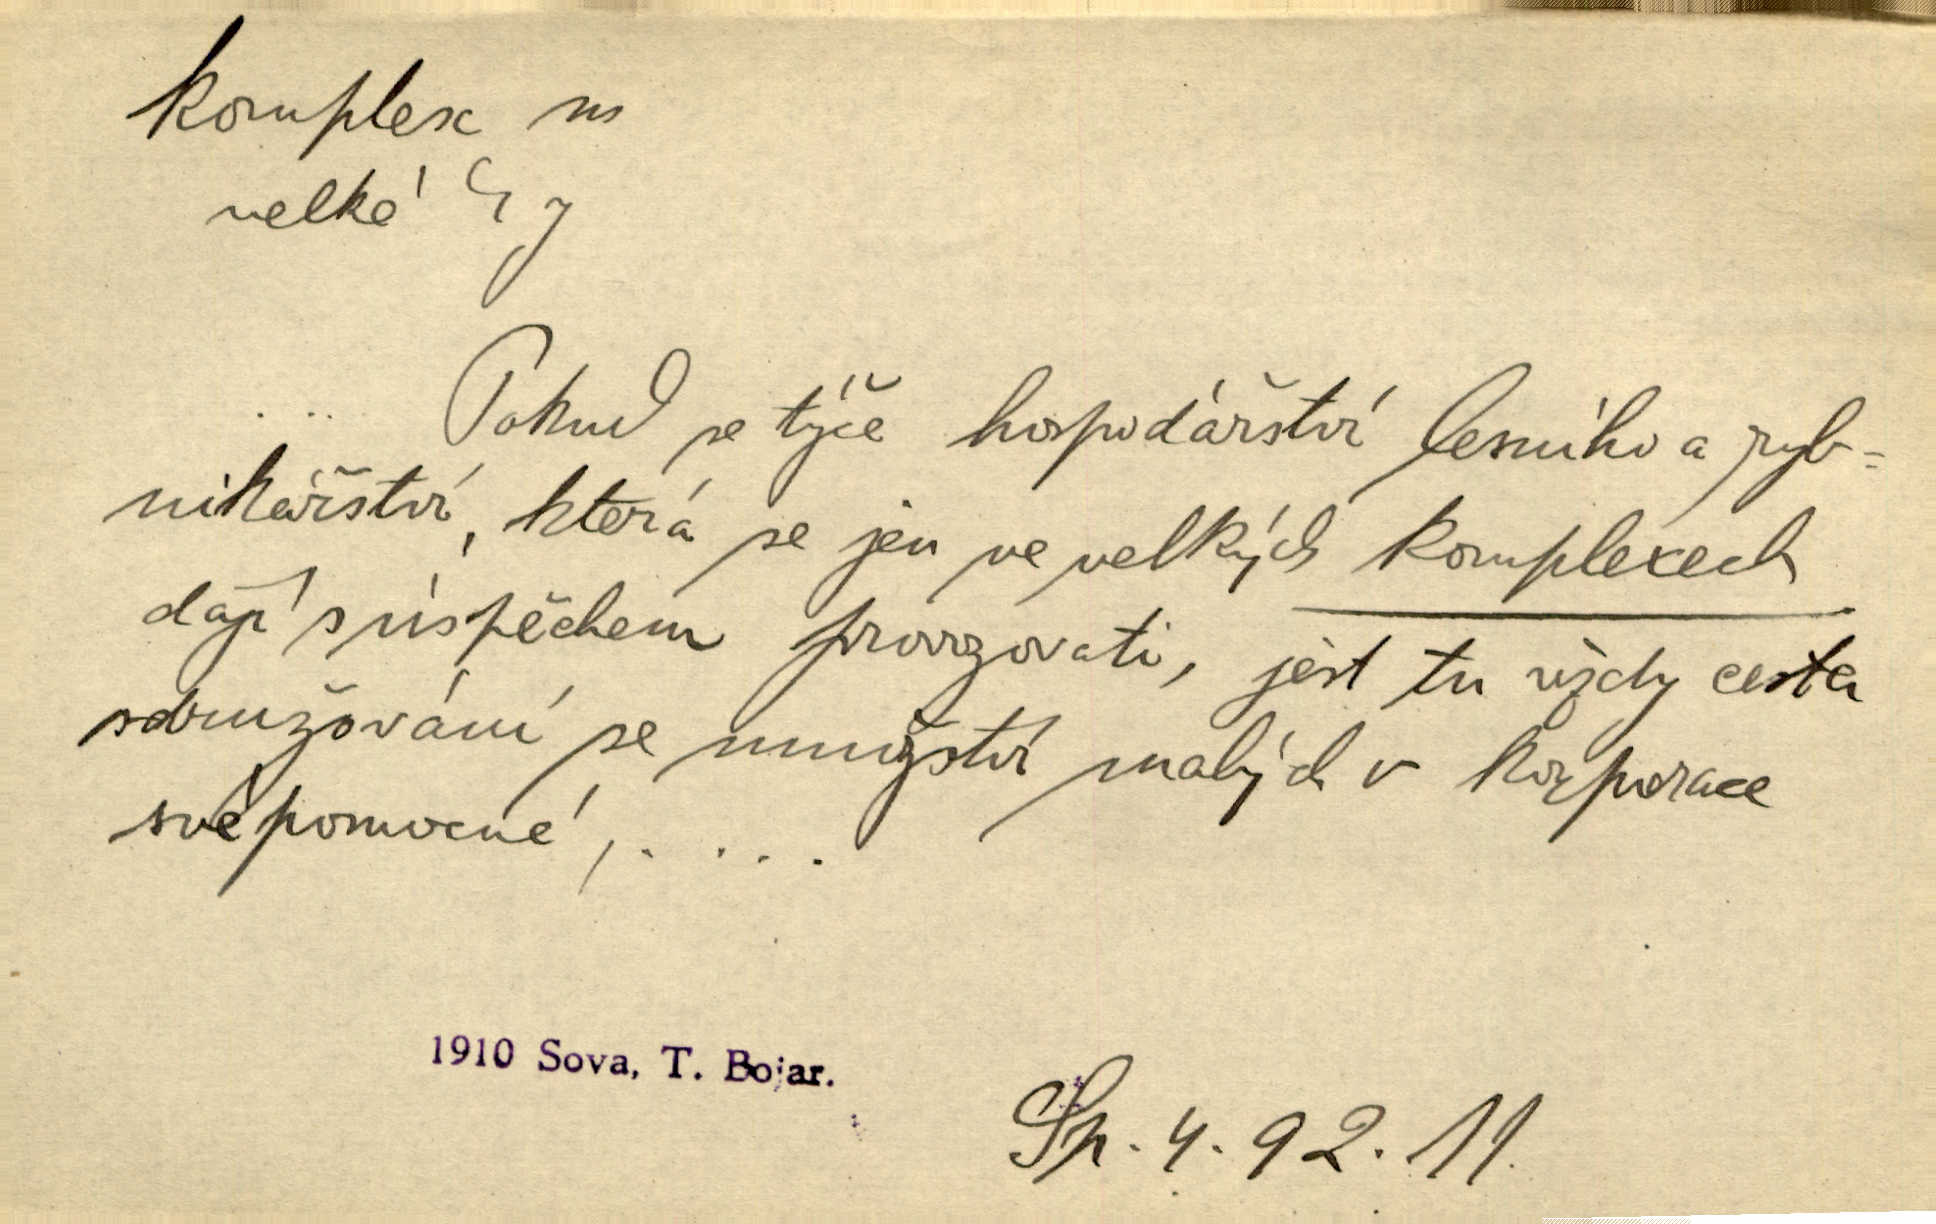 komplex m
velké
... Pokud se týče hospodářství lesního a ryb=
nikářství, která se jen ve velkých komplexech
dají s úspěchem provozovati, jest tu vždy cesta
sdružování se množství malých v korporace
svépomocné, ....
1910 Sova, T. Bojar.
Sp. 4. 92. 11.